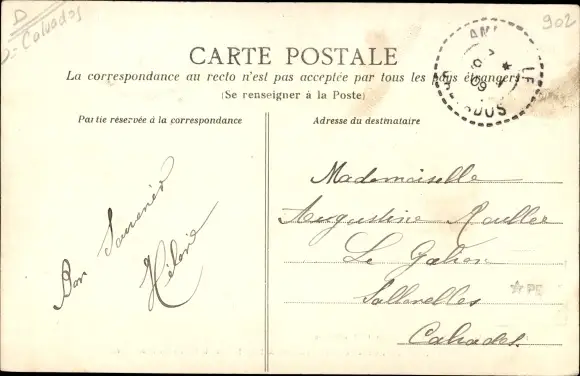 D
D - Calvados
902
CARTE POSTALE
La correspondance au recto n'est pas acceptée par tous les pays étrangers
(Se renseigner à la Poste)
Partie réservée à la correspondance
Adresse du destinataire
09
Bon Souvenir
Hélène
Mademoiselle
Augustine
Le
Sallenelles
Calvados.
PE